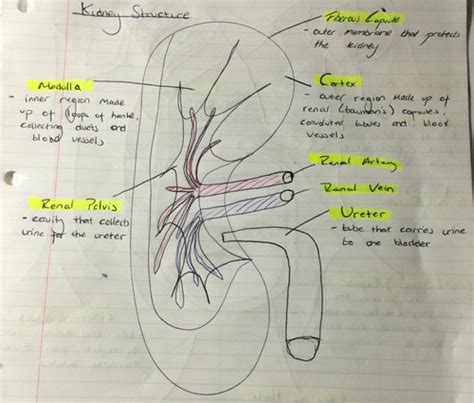 Kidney Structure
Fibrous Capsule
- outer membrane that protects
the kidney
Medulla
- inner region made
up of (loops of henle,
collecting ducts and
blood vessels
Cortex
- outer region made up of
renal (bowman's) capsules,
convoluted tubules and blood
vessels
Renal Artery
Renal Vein
Renal Pelvis
- cavity that collects
urine for the ureter
Ureter
- tube that carries urine
to the bladder